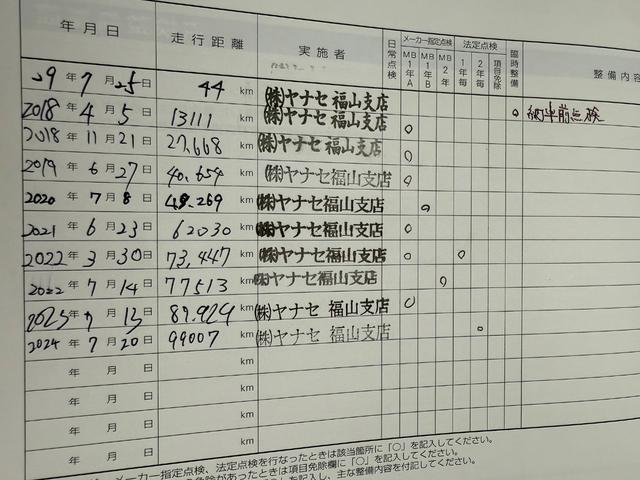 年月日 走行距離 実施者 日常点検 メーカー指定点検 MB1年A MB1年B MB2年 法定点検 1年毎 2年毎 項目免除 臨時整備 整備内容
29年7月25日 44 km (株)ヤナセ 福山支店
2018年4月5日 13111 km (株)ヤナセ 福山支店 ○ 納車前点検
2018年11月21日 27,668 km (株)ヤナセ 福山支店 ○
2019年6月27日 40,654 km (株)ヤナセ福山支店 ○
2020年7月8日 48,269 km (株)ヤナセ福山支店 ○
2021年6月23日 62030 km (株)ヤナセ福山支店 ○
2022年3月30日 73,447 km (株)ヤナセ福山支店 ○ ○
2022年7月14日 77513 km (株)ヤナセ福山支店 ○
2023年7月13日 km (株)ヤナセ 福山支店 ○
2024年7月20日 99007 km (株)ヤナセ 福山支店 ○
年月日 km
年月日 km
年月日 km
年月日 km
メーカー指定点検、法定点検を行なったときは該当箇所に「○」を記入してください。
免除があったときは項目免除欄に「○」を記入してください。
を記入し、主な整備内容を付記してください。